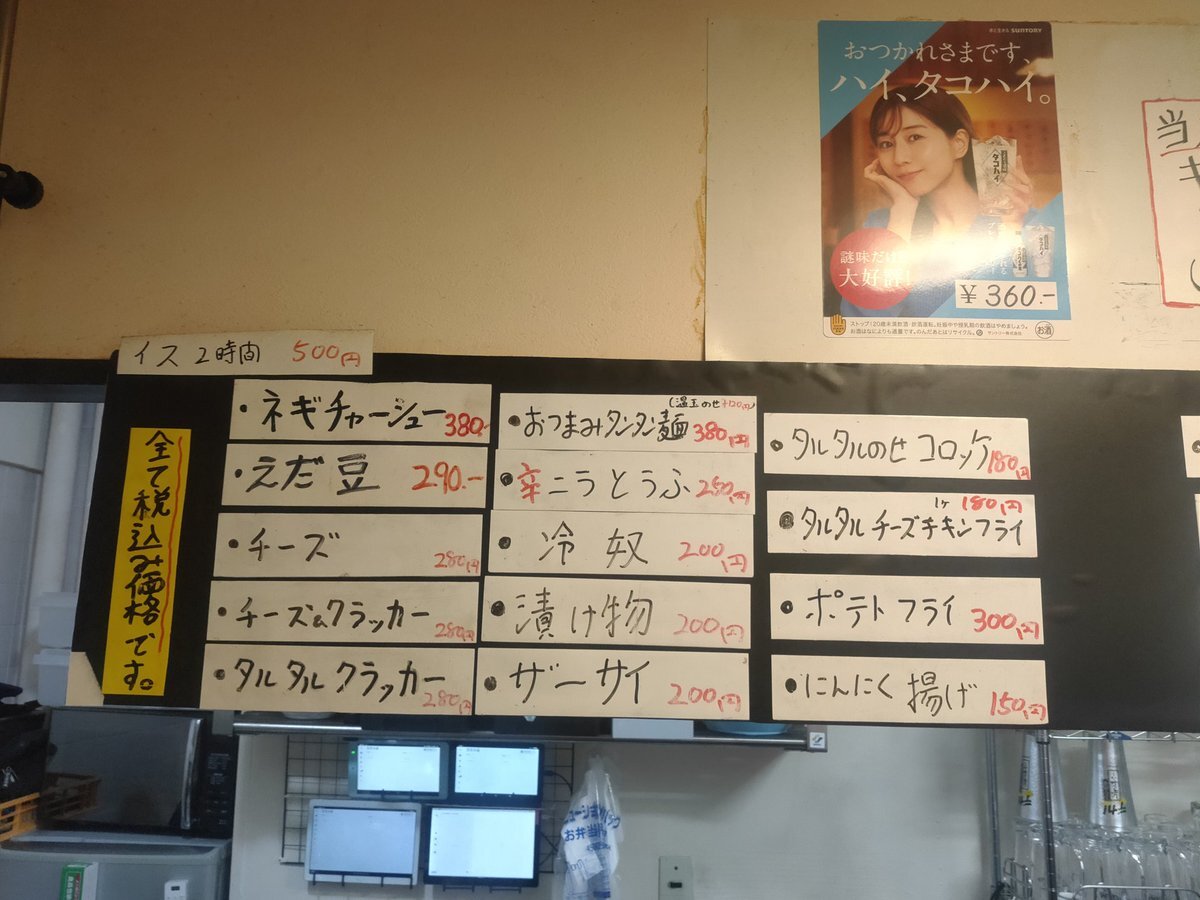 水と生きる SUNTORY
おつかれさまです、
ハイ、タコハイ。
タコハイ
謎味だけ
大好評!
¥360.-
ストップ!20歳未満飲酒・飲酒運転。妊娠中や授乳期の飲酒はやめましょう。
お酒はなによりも適量です。のんだあとはリサイクル。
サントリー株式会社
お酒
当
キ
イス 2時間 500円
全て税込み価格です。
・ネギチャーシュー 380.-
・えだ豆 290.-
・チーズ 280円
・チーズ&クラッカー 280円
・タルタルクラッカー 280円
(温玉のせ+120円)
・おつまみタンタン麺 380円
・辛ニラとうふ 250円
・冷奴 200円
・漬け物 200円
・ザーサイ 200円
・タルタルのせコロッケ 180円
1ヶ 180円
・タルタルチーズチキンフライ
・ポテトフライ 300円
・にんにく揚げ 150円
お弁当
デカ